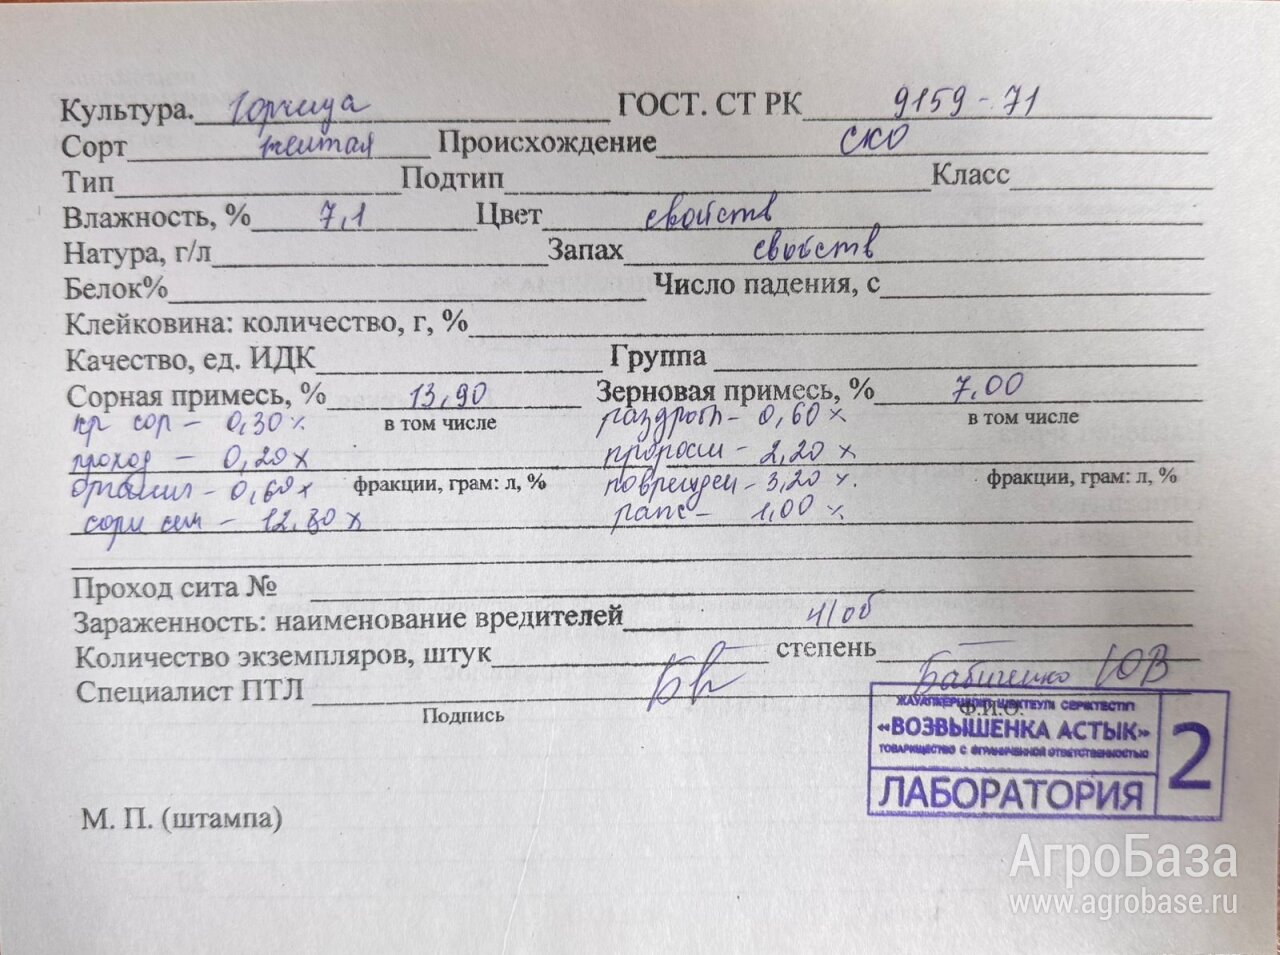 Культура. Горчица ГОСТ. СТ РК 9159-71
Сорт желтая Происхождение СКО
Тип Подтип Класс
Влажность, % 7,1 Цвет свойств
Натура, г/л Запах свойств
Белок% Число падения, с
Клейковина: количество, г, %
Качество, ед. ИДК Группа
Сорная примесь, % 13,90 Зерновая примесь, % 7.00
кр сор - 0,30% в том числе раздробл - 0,60% в том числе
проход - 0,20% проросш - 2,20%
органил - 0,60% фракции, грам: л, % поврежден - 3,20% фракции, грам: л, %
сорн сем - 12.80% рапс - 1,00%
Проход сита №
Зараженность: наименование вредителей н/об
Количество экземпляров, штук степень
Специалист ПТЛ Бабиченко ЮВ
Подпись Ф.И.О.
ЖАУАПКЕРШІЛІГІ ШЕКТЕУЛІ СЕРІКТЕСТІГІ
«ВОЗВЫШЕНКА АСТЫК»
ТОВАРИЩЕСТВО С ОГРАНИЧЕННОЙ ОТВЕТСТВЕННОСТЬЮ
ЛАБОРАТОРИЯ 2
М. П. (штампа)
АгроБаза
www.agrobase.ru